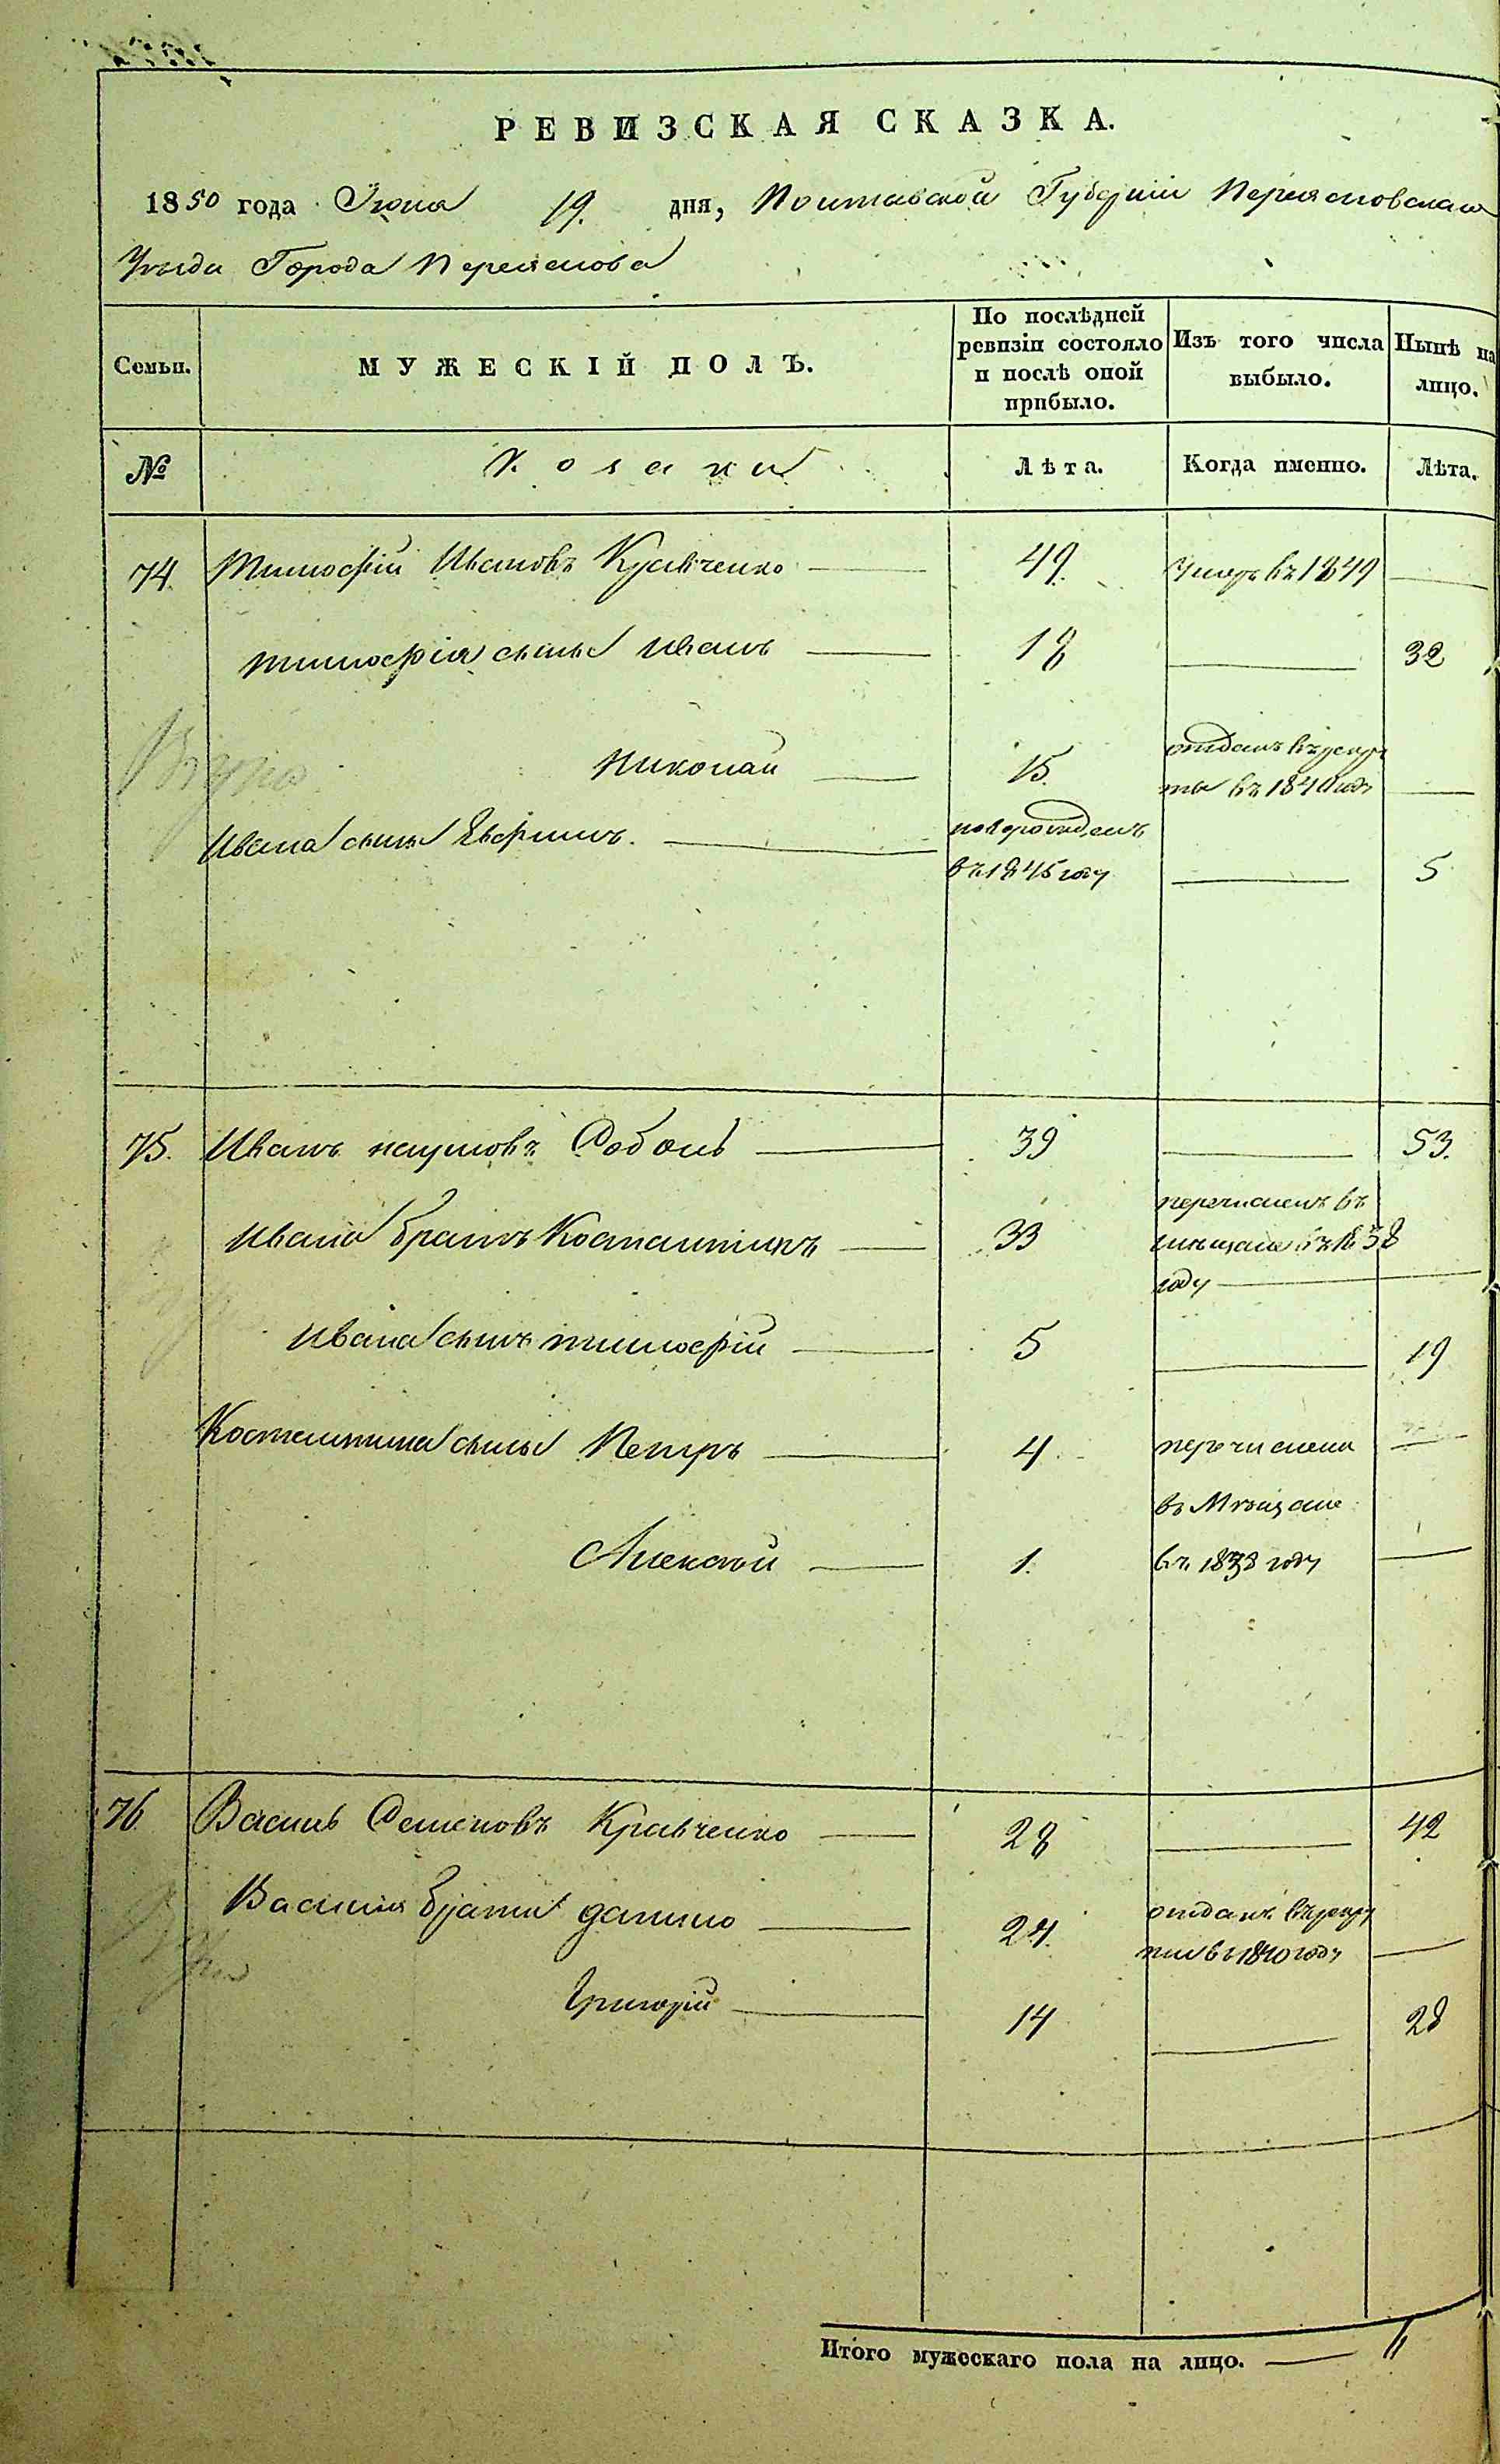 РЕВИЗСКАЯ СКАЗКА.
1850 года Іюня 19. дня, Полтавской Губерніи Переясловскаго
Уезда Города Переяслова
Семьи. МУЖЕСКІЙ ПОЛЪ. По послѣдней ревизіи состояло и послѣ оной прибыло. Изъ того числа выбыло. Нынѣ на лицо.
№ Козаки Лѣта. Когда именно. Лѣта.
74. Тимофій Ивановъ Кравченко 49. Умеръ въ 1849
Тимофія сыны Иванъ 18 32
Николай 15. отданъ въ рекру
ты въ 1840 году
Ивана сынъ Ефримъ. новорожденъ
въ 1845 году 5
75. Иванъ Наумовъ Соболь 39 53.
Ивана братъ Костантинъ 33 перечисленъ въ
мещане въ 1838
году
Ивана сынъ Тимофій 5 19
Костантина сыны Петръ 4 перечислены
въ Мещане
Алексѣй 1. въ 1838 году
76. Василь Семеновъ Кравченко 28 42
Василія братья Данило 24. отданъ въ рекру
ты въ 1840 году
Григорій 14 28
Итого мужескаго пола на лицо.